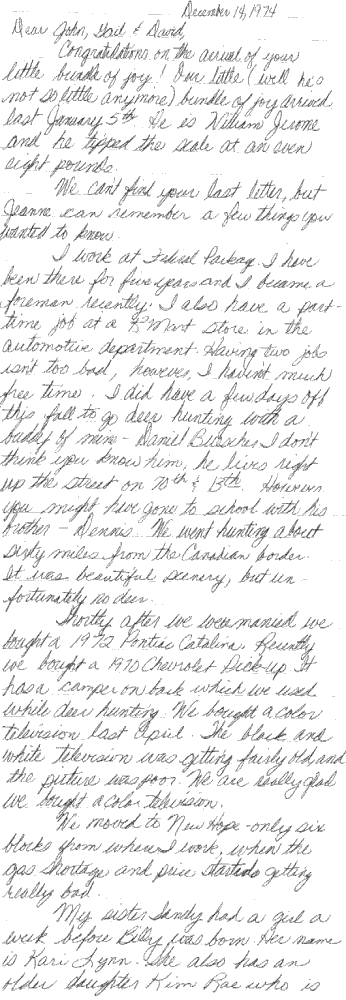 December 14, 1974
Dear John, Gail & David,
Congratulations on the arrival of your
little bundle of joy! Our little (well he's
not so little anymore) bundle of joy arrived
last January 5th. He is William Jerome
and he tipped the scale at an even
eight pounds.
We can't find your last letter, but
Jeanne can remember a few things you
wanted to know.
I work at Federal Package. I have
been there for five years and I became a
foreman recently. I also have a part-
time job at a K-Mart store in the
automotive department. Having two jobs
isn't too bad, however, I haven't much
free time. I did have a few days off
this fall to go deer hunting with a
buddy of mine - Daniel I don't
think you know him, he lives right
up the street on 10th & 13th. However
you might have gone to school with his
brother - Dennis. We went hunting about
sixty miles from the Canadian border.
It was beautiful scenery, but un-
fortunately no deer.
Shortly after we were married we
bought a 1972 Pontiac Catalina. Recently
we bought a 1970 Chevrolet Pick-up. It
has a camper on back which we used
while deer hunting. We bought a color
television last April. The black and
white television was getting fairly old and
the picture was poor. We are really glad
we bought a color television.
We moved to New Hope - only six
blocks from where I work, when the
gas shortage and price started getting
really bad.
My sister Sandy had a girl a
week before Billy was born. Her name
is Kari Lynn. She also has an
older daughter Kim Rae who is